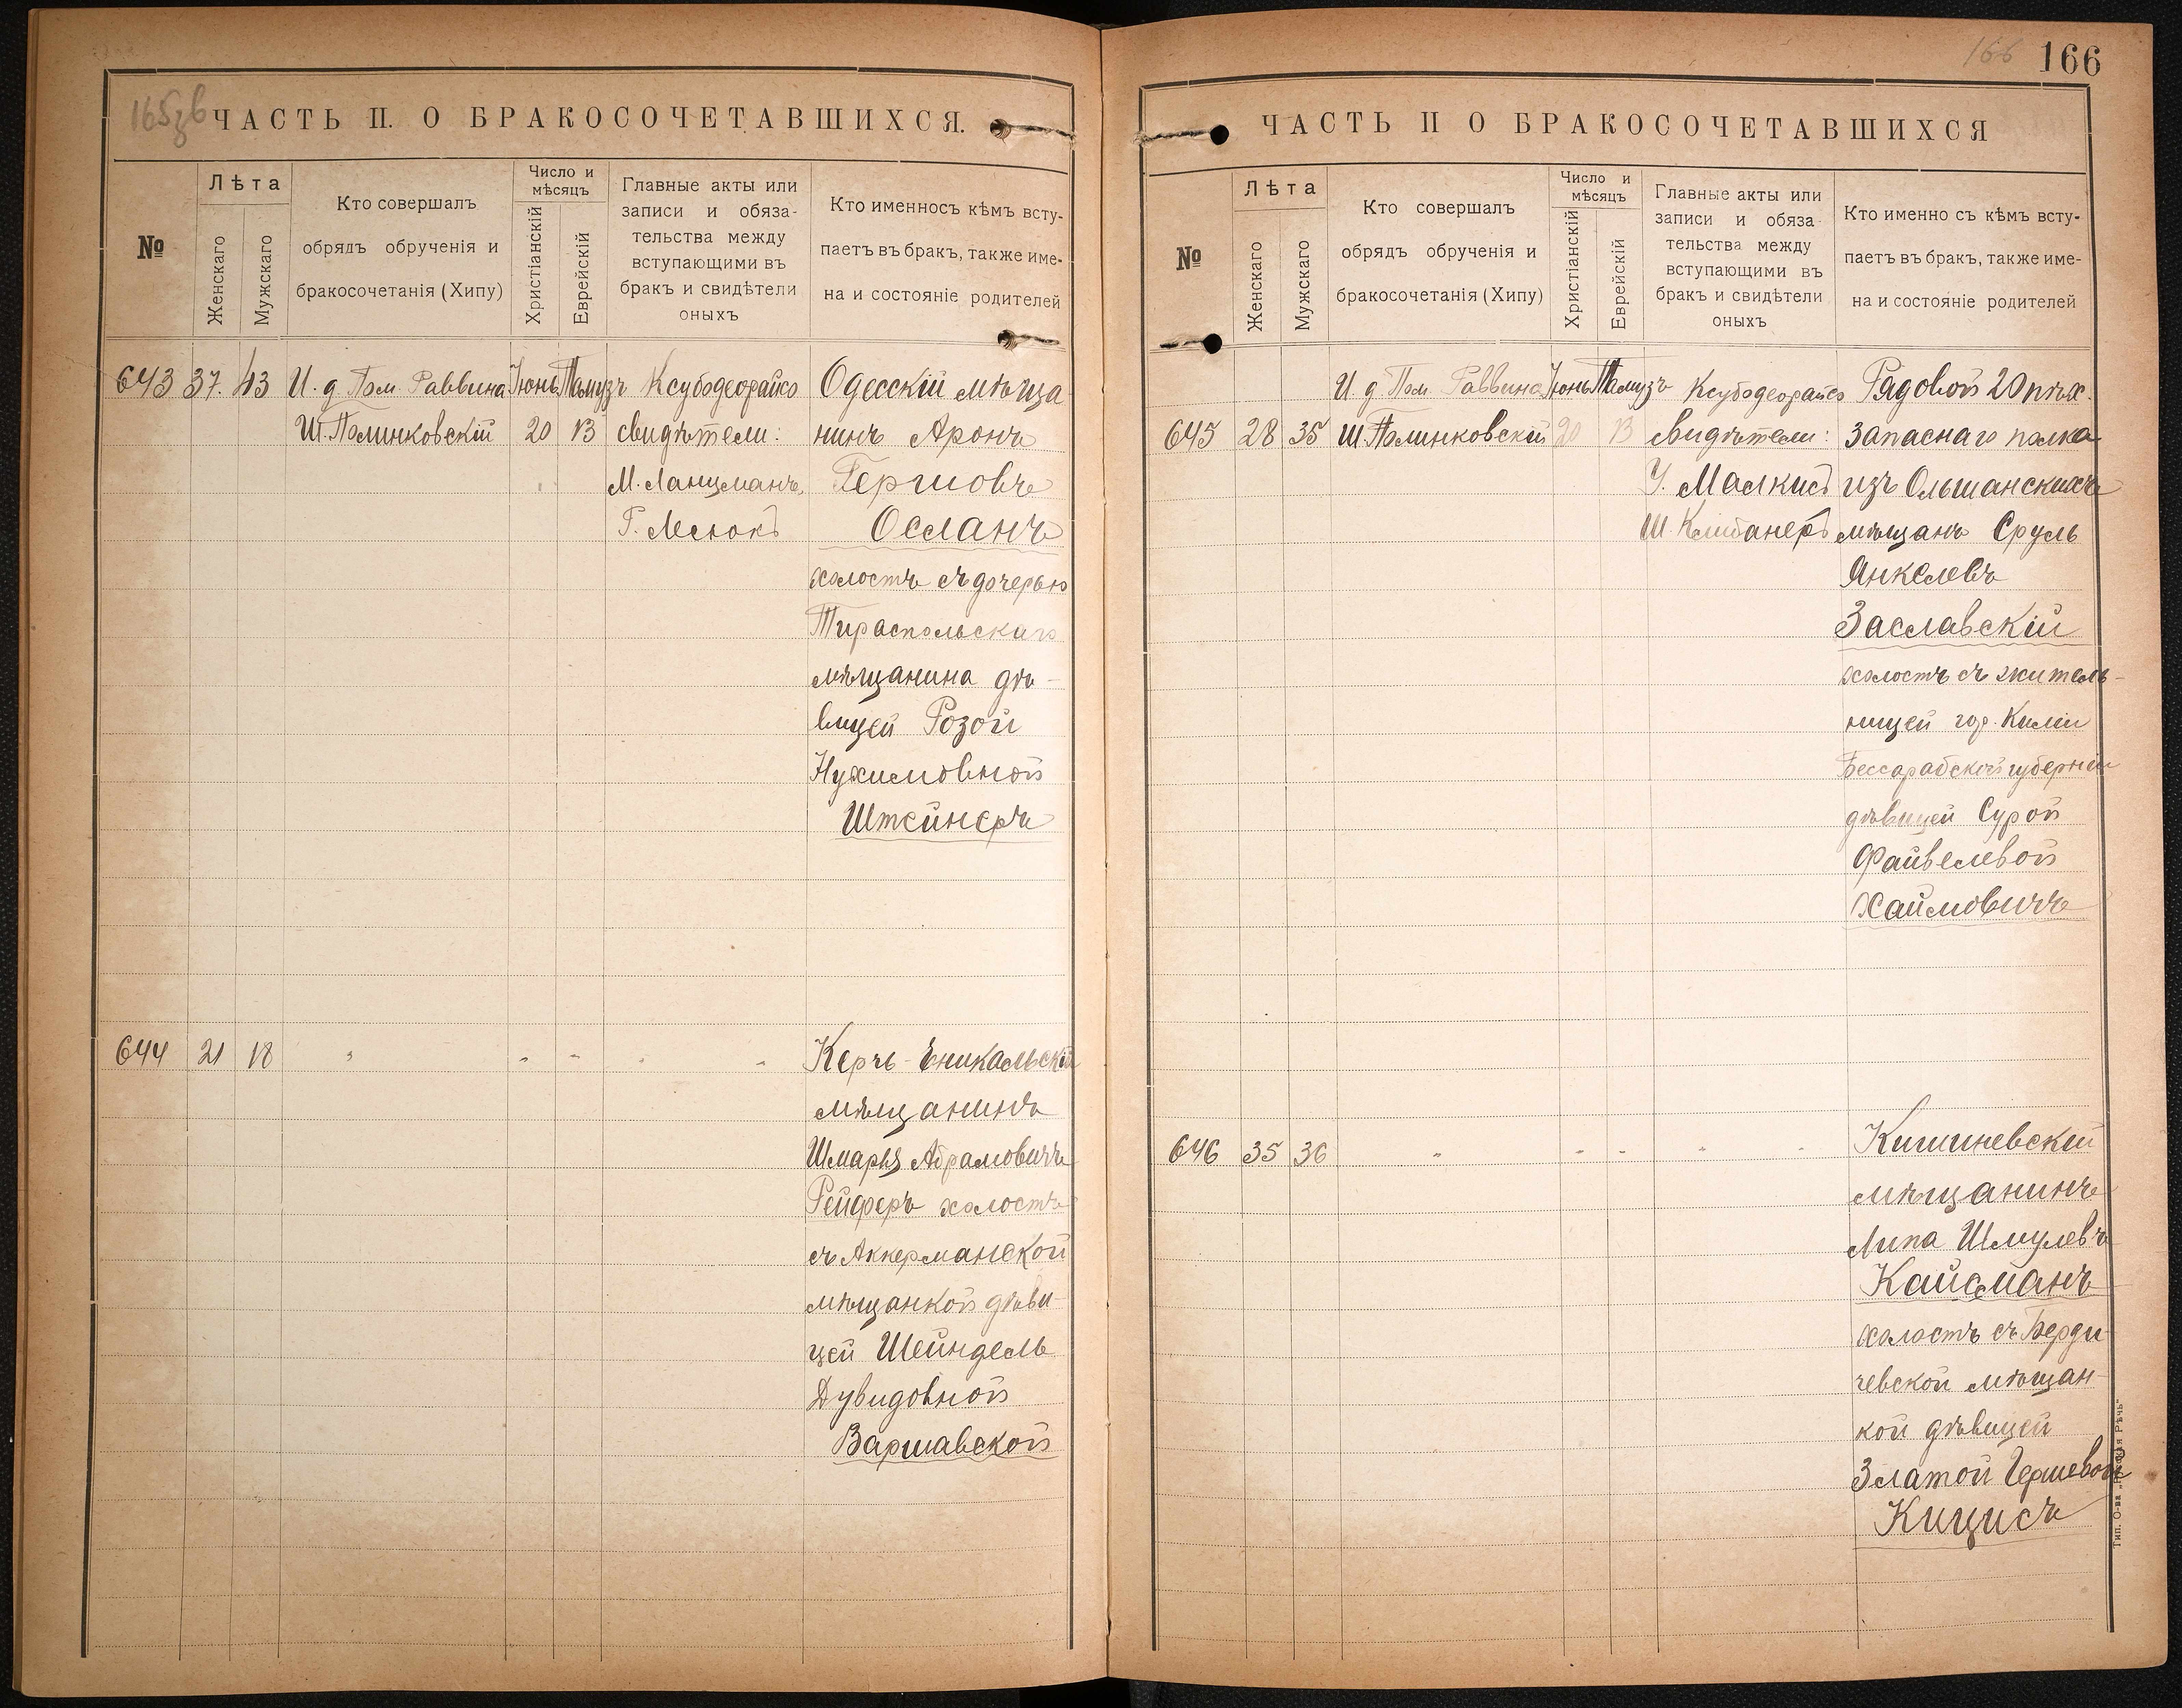 165зв
ЧАСТЬ II. О БРАКОСОЧЕТАВШИХСЯ.
№
Лѣта
Женскаго
Мужскаго
Кто совершалъ
обрядъ обрученія и
бракосочетанія (Хипу)
Число и
мѣсяцъ
Христіанскій
Еврейскій
Главные акты или
записи и обяза-
тельства между
вступающими въ
бракъ и свидѣтели
оныхъ
Кто именносъ кѣмъ всту-
паетъ въ бракъ, также име-
на и состояніе родителей
643 37. 43 И. д. Пом. Раввина Іюнь Тамузъ Ксубодеорайсо Одесскій мѣща
Ш. Полинковскій 20 13 свидѣтели: нинъ Аронъ
М. Ланцманъ, Гершовъ
Г. Меснокъ Осланъ
холостъ съ дочерью
Тираспольскаго
мѣщанина дѣ-
вицей Розой
Нухимовной
Штейнеръ
644 21 18 " " " " " Керчь-Еникальскій
мѣщанинъ
Шмарья Абрамовичъ
Рейферъ холостъ
съ Аккерманской
мѣщанкой дѣви-
цей Шейндель
Дувидовной
Варшавской
166 166
ЧАСТЬ II О БРАКОСОЧЕТАВШИХСЯ
№
Лѣта
Женскаго
Мужскаго
Кто совершалъ
обрядъ обрученія и
бракосочетанія (Хипу)
Число и
мѣсяцъ
Христіанскій
Еврейскій
Главные акты или
записи и обяза-
тельства между
вступающими въ
бракъ и свидѣтели
оныхъ
Кто именно съ кѣмъ всту-
паетъ въ бракъ, также име-
на и состояніе родителей
И д Пом Раввина Іюнь Тамузъ Ксубодеорайсо Рядовой 20 пѣх.
645 28 35 Ш Полинковскій 20 13 свидѣтели: запаснаго полка
У. Малкисъ изъ Ольшанскихъ
Ш. Клибанеръ мѣщанъ Сруль
Янкелевъ
Заславскій
холостъ съ житель-
ницей гор. Киліи
Бессарабской губерніи
дѣвицей Сурой
Файвелевой
Хаймовичъ
646 35 36 " " " " " Кишиневскій
мѣщанинъ
Липа Шмулевъ
Кайсманъ
холостъ съ Берди-
чевской мѣщан-
кой дѣвицей
Златой Гершевой
Кицисъ